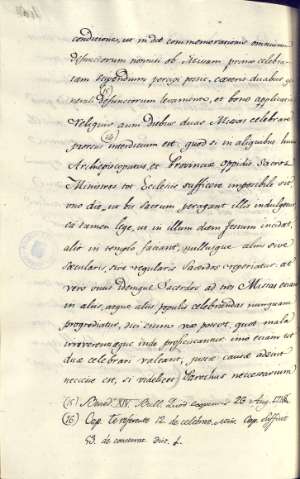 conditione, ut in die commemorationis omnium
defunctorum nonnisi ob Missam primo celebra-
tam stipendium percipi possit, cæteris duabus ge-
nerali defunctorum levamine, et bono applicatis.
(15)
Reliquis anni diebus duas Missas celebrare
prorsus interdictum est: quod si in aliquibus hujus
(16)
Archiepiscopatus, et Provinciæ oppidis Sacros
Ministros tot Ecclesiis sufficere impossibile sit,
uno die, ut bis sacrum peragant illis indulgetur,
ea tamen lege, ut in illum diem festum incidat,
aliis in templo faciant, nullusque alius sive
sæcularis, sive regularis Sacerdos reperiatur. at
vero unus idemque Sacerdos ad tres Missas etiam
in aliis, atque aliis populis celebrandas nunquam
progrediatur, dici enim non potest, quot mala
irreverentiæque inde proficiscantur. imo etiam ut
duæ celebrari valeant, justæ causæ adsint
necesse est, si videlicet Parochus necessarium
(15) Bened. XIV. Bull. Quod expensis 26 Aug. 1748.
(16) Cap. te referente 12 de celebrat. Miss. Cap. sufficit
53. de consecrat. dist. 1.